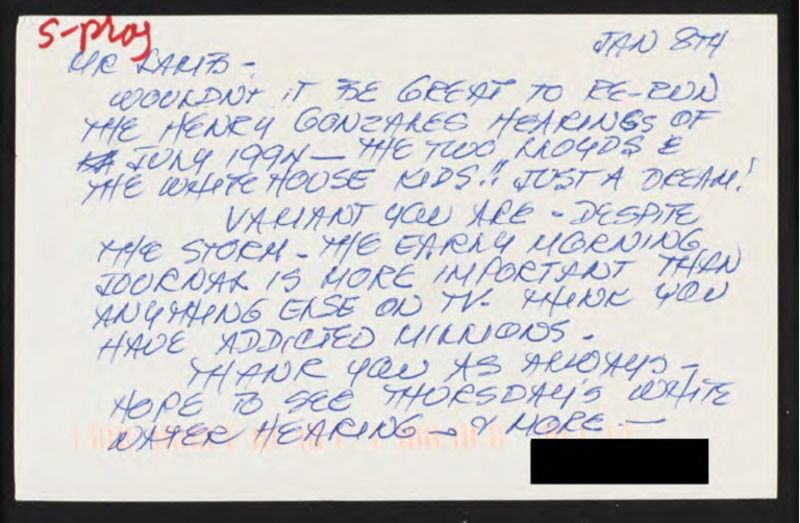 S-prog
JAN 8TH
MR LAMB -
WOULDNT IT BE GREAT TO RE-RUN
THE HENRY GONZALES HEARINGS OF
JULY 1994 - THE TWO LLOYDS &
THE WHITE HOUSE KIDS!! JUST A DREAM!
VALIANT YOU ARE - DESPITE
THE STORM - THE EARLY MORNING
JOURNAL IS MORE IMPORTANT THAN
ANYTHING ELSE ON TV - THINK YOU
HAVE ADDICTED MILLIONS -
THANK YOU AS ALWAYS -
HOPE TO SEE THURSDAY'S WHITE
WATER HEARING - & MORE -